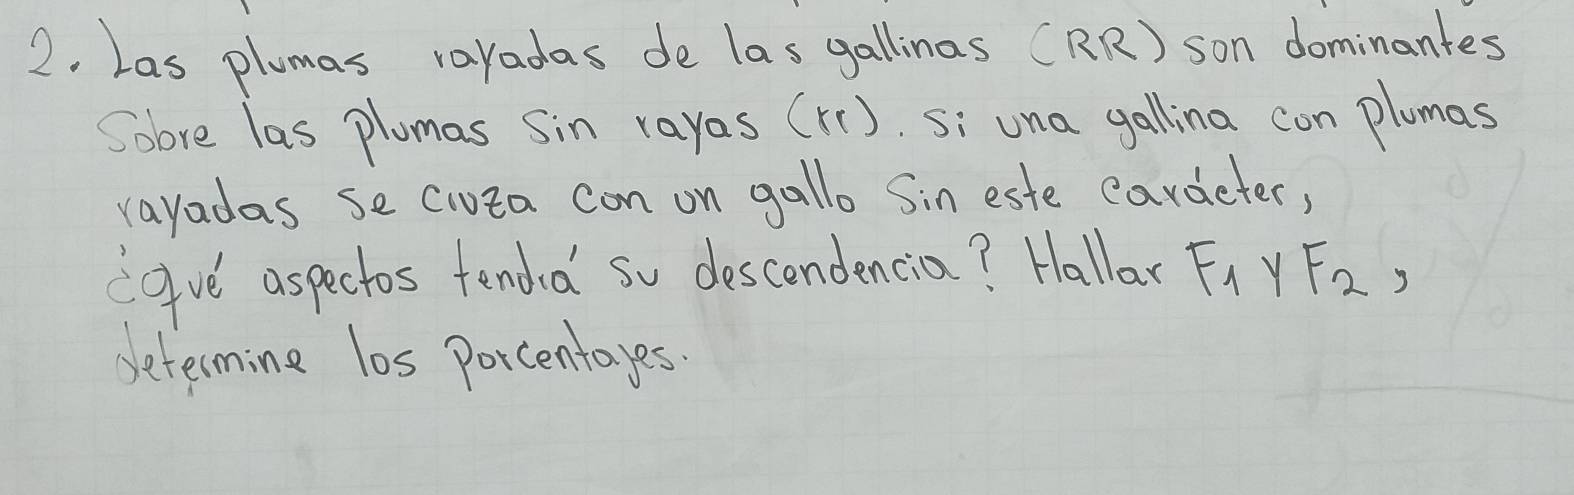 2. Las plumas rayadas de las gallinas (RR) son dominantes
Sobre las plumas sin rayas (rr). Si una gallina con plumas
rayadas se cruza con un gallo sin este carácter,
¿qué aspectos tendrá su descendencia? Hallar F1 y F2,
determine los porcentajes.